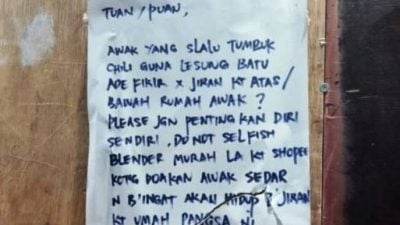 TUAN / PUAN,
AWAK YANG SLALU TUMBUK
CHILI GUNA LESUNG BATU
ADE FIKIR X JIRAN KT ATAS /
BAWAH RUMAH AWAK ?
PLEASE JGN PENTINGKAN DIRI
SENDIRI , DO NOT SELFISH
BLENDER MURAH LA KT SHOPEE
DOAKAN AWAK SEDAR
N B'INGAT AKAN HIDUP B'JIRAN
KT UMAH PANGSA NI